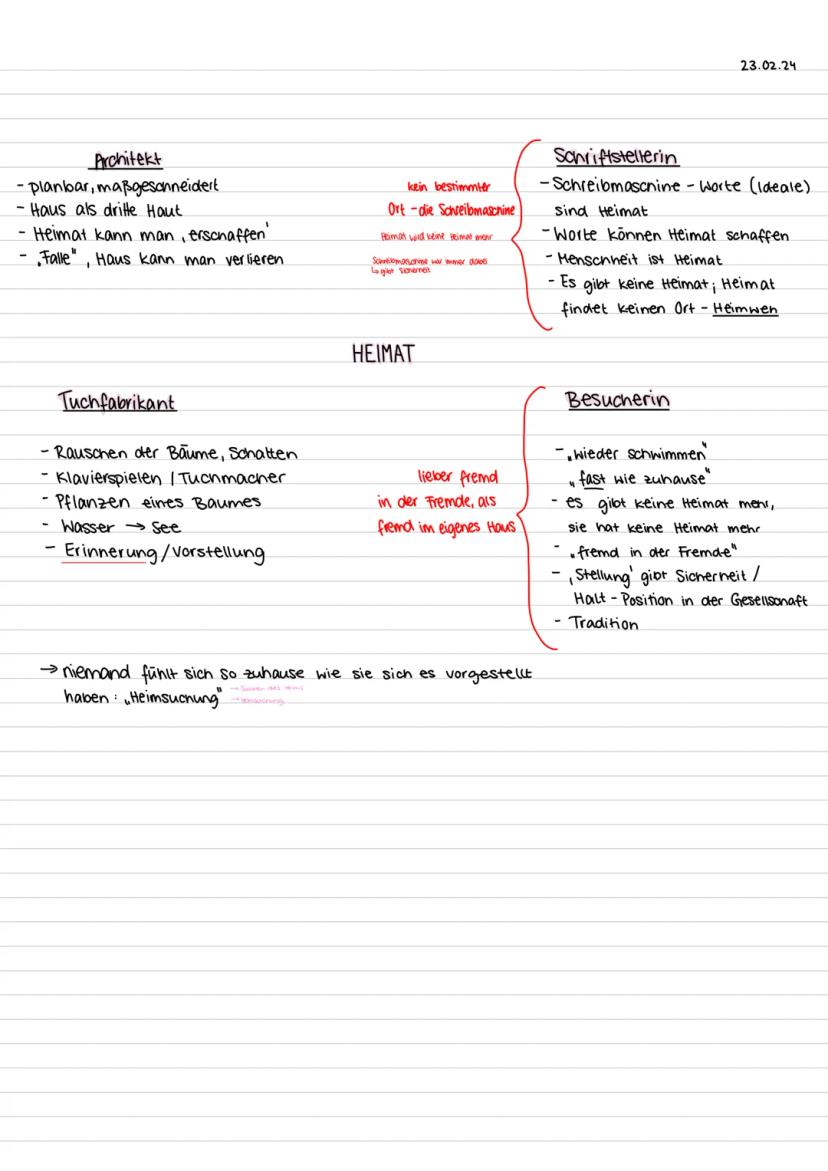 23.02.24
Architekt
- planbar, maßgeschneidert
- Haus als dritte Haut
- Heimat kann man ‚erschaffen'
- „Falle", Haus kann man verlieren
kein bestimmter
Ort - die Schreibmaschine
Heimat wird keine Heimat mehr
Schreibmaschine war immer dabei
↳ gibt Sicherheit
Schriftstellerin
- Schreibmaschine - Worte (Ideale)
sind Heimat
- Worte können Heimat schaffen
- Menschheit ist Heimat
- Es gibt keine Heimat; Heimat
findet keinen Ort - Heimweh
HEIMAT
Tuchfabrikant
- Rauschen der Bäume, Schatten
- Klavierspielen / Tuchmacher
- Pflanzen eines Baumes
- Wasser → See
- Erinnerung / Vorstellung
lieber fremd
in der Fremde, als
fremd im eigenes Haus
Besucherin
- „wieder schwimmen"
„fast wie zuhause"
- es gibt keine Heimat mehr,
sie hat keine Heimat mehr
- „fremd in der Fremde"
- ‚Stellung' gibt Sicherheit /
Halt - Position in der Gesellschaft
- Tradition
→ niemand fühlt sich so zuhause wie sie sich es vorgestellt
haben: „Heimsuchung"
→ Suchen des Heims
→ Heimsuchung